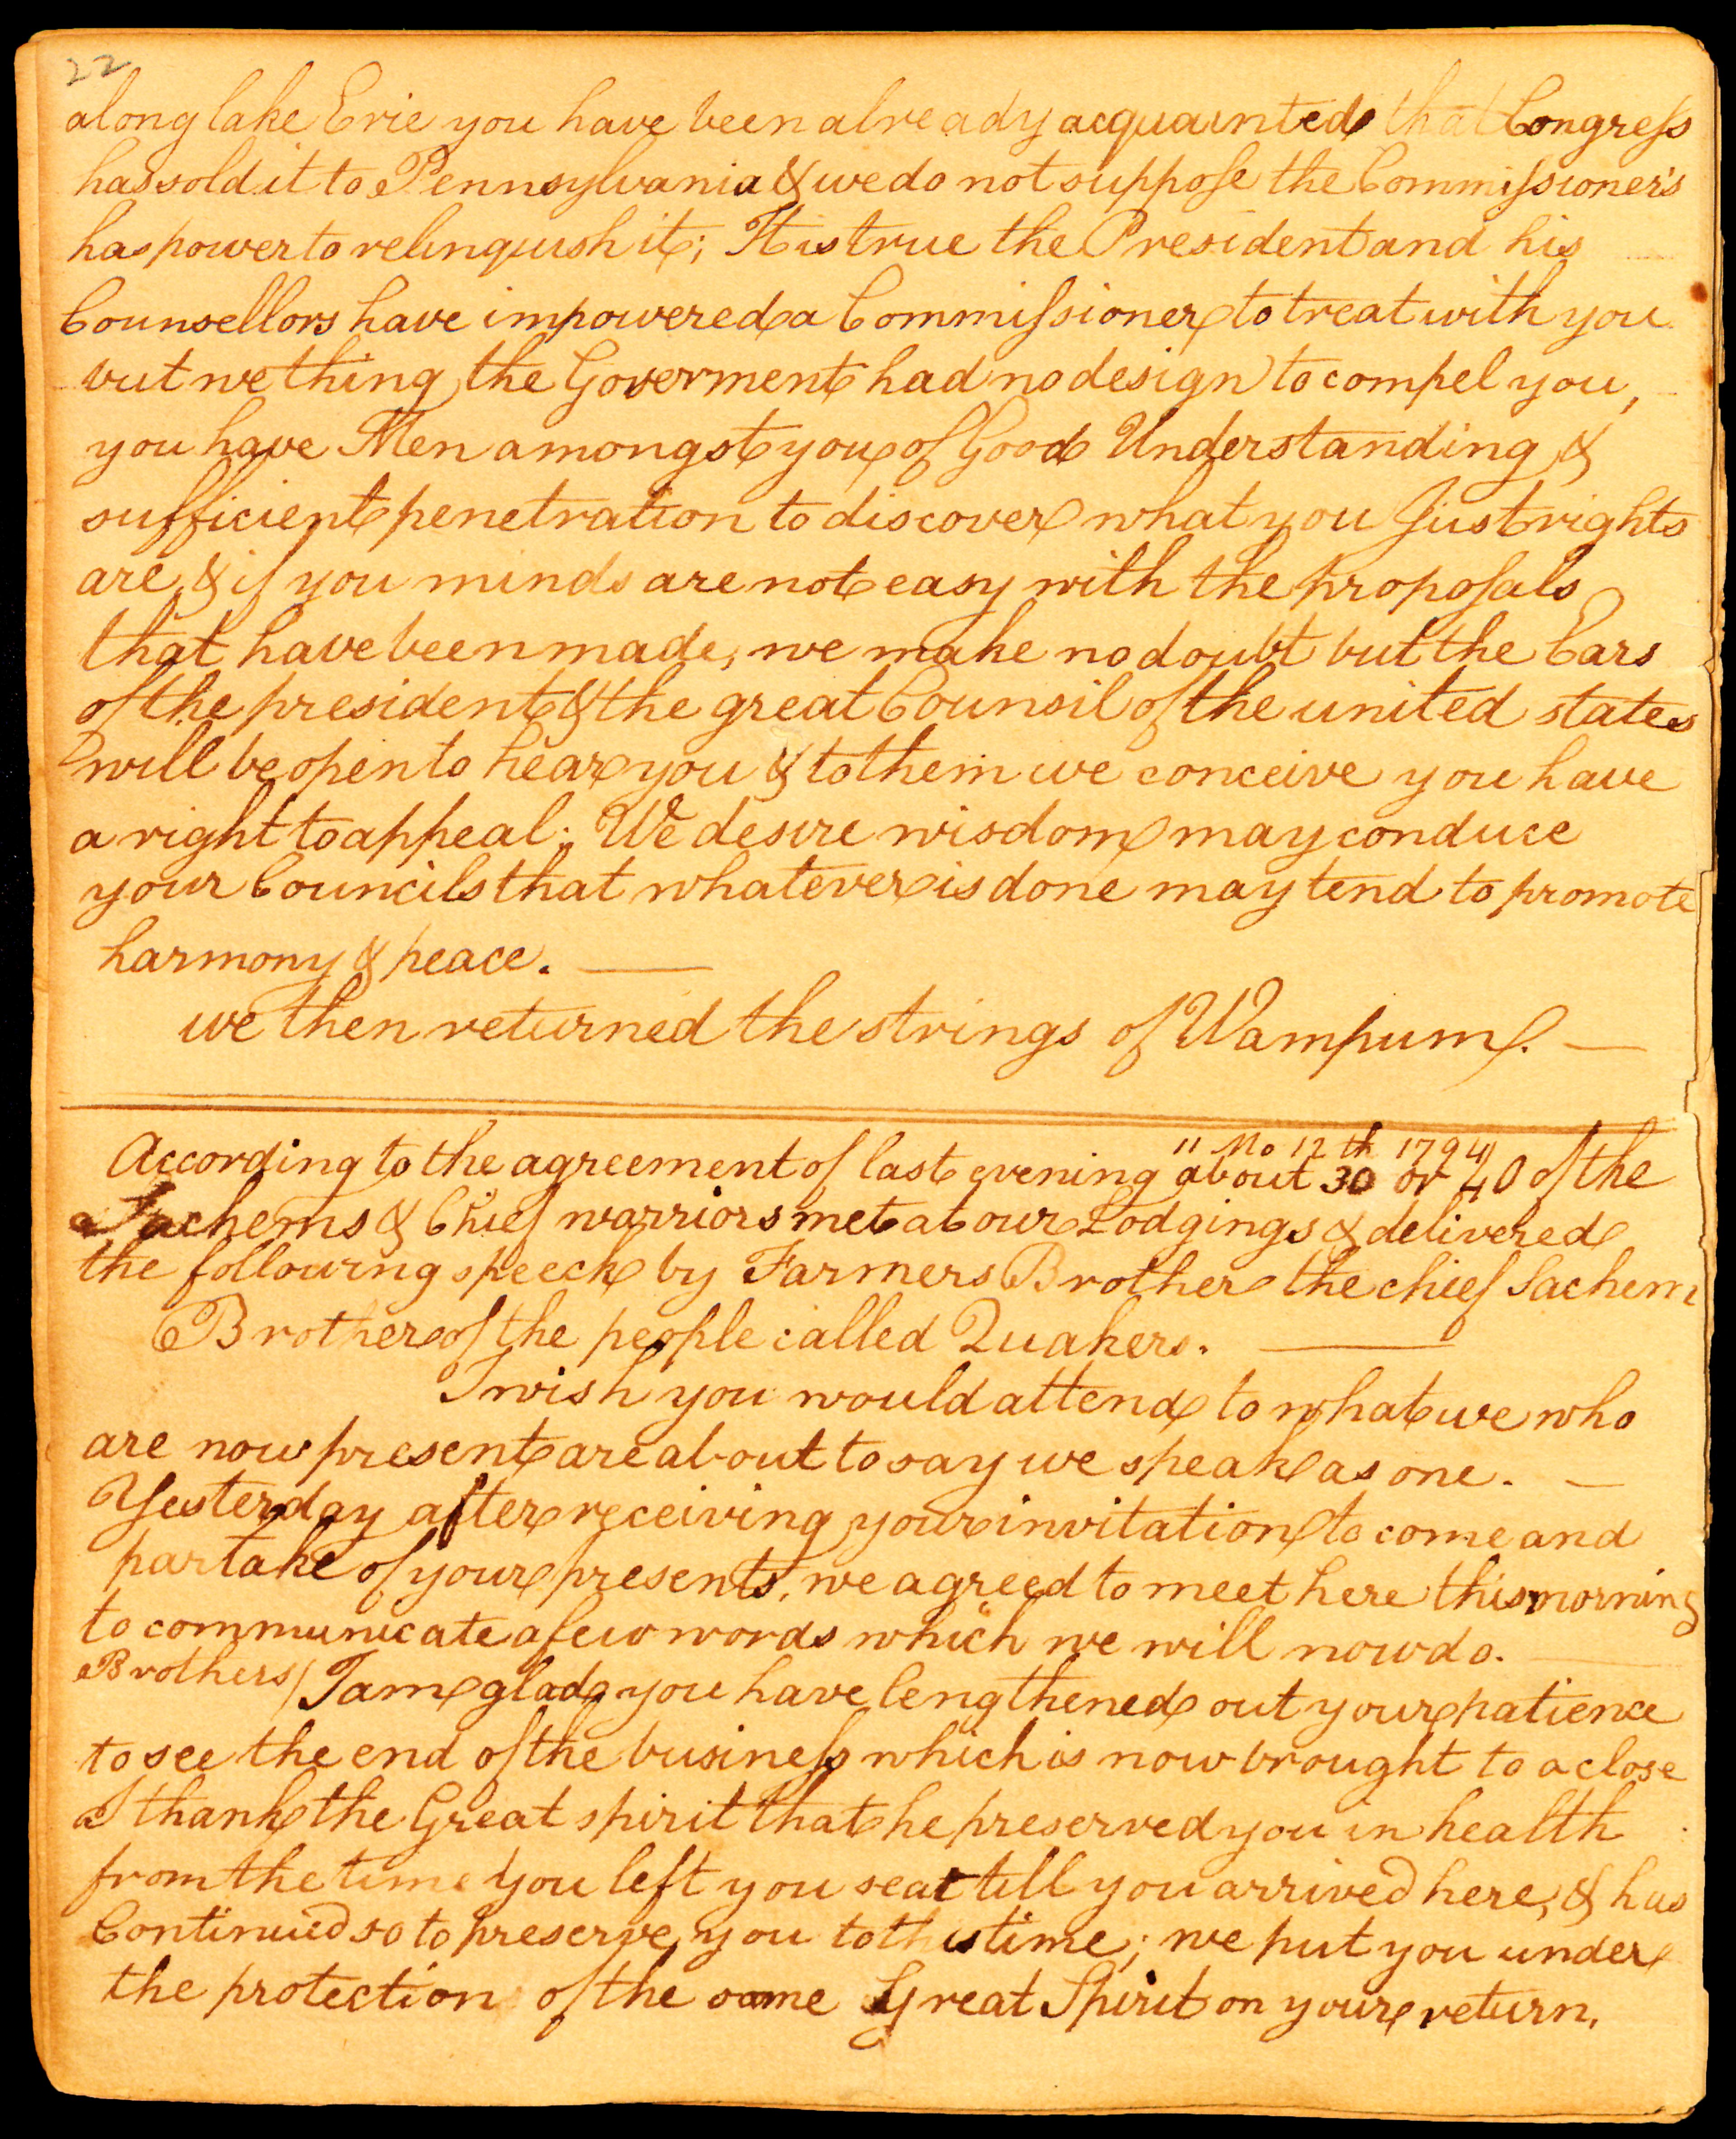 22
along lake Erie you have been already acquainted that Congress
has sold it to Pennsylvania & we do not suppose the Commissioner's
has power to relinquish it; It is true the President and his
Counsellors have impowered a Commissioner to treat with you
but we thing the Goverment had no design to compel you,
you have Men amongst you of Good Understanding &
sufficient penetration to discover what you Just rights
are, & if you minds are not easy with the proposals
that have been made, we make no doubt but the Ears
of the president & the great Counsil of the united states
will be open to hear you & to them we conceive you have
a right to appeal. We desire wisdom may conduce
your Councils that whatever is done may tend to promote
harmony & peace. —
we then returned the strings of Wampum. —
11 Mo 12th 1794
According to the agreement of last evening about 30 or 40 of the
Sachems & Chief warriors met at our Lodgings & delivered
the following speech by Farmers Brother the chief Sachem
Brothers of the people called Quakers. —
I wish you would attend to what we who
are now present are about to say we speak as one. —
Yesterday after receiving your invitation to come and
partake of your presents, we agreed to meet here this morning
to communicate a few words which we will now do. —
Brothers/ I am glad you have lengthened out your patience
to see the end of the business which is now brought to a close
I thank the Great spirit that he preserved you in health
from the time you left you seat till you arrived here, & has
Continued so to preserve you to this time; we put you under
the protection of the same Great Spirit on your return.